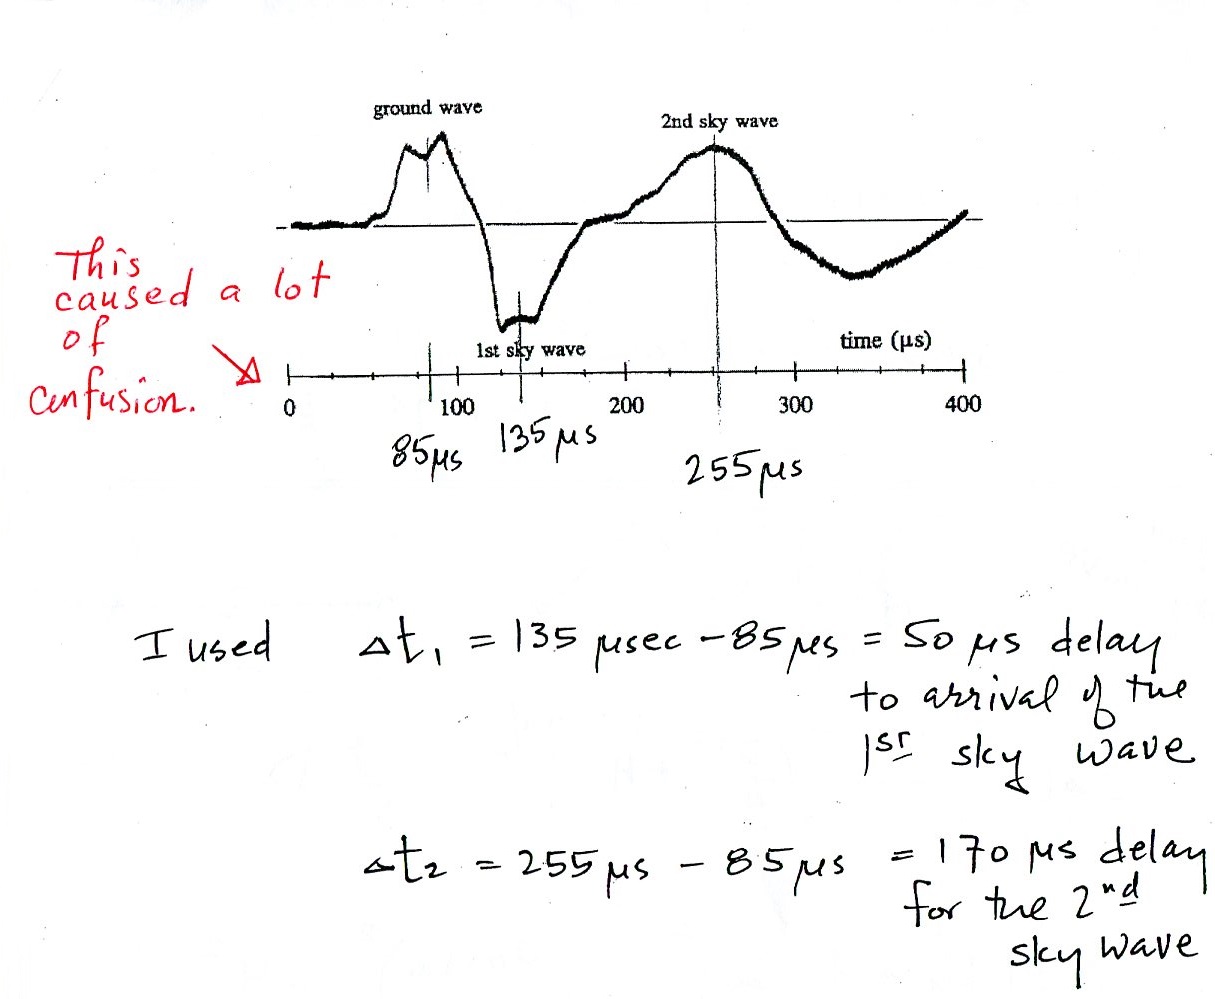 ground wave
2nd sky wave
This
caused a lot
of
confusion.
1st sky wave
time (μs)
0 100 200 300 400
85μs 135μs 255μs
I used Δt₁ = 135 μsec - 85μs = 50 μs delay
to arrival of the
1st sky wave
Δt₂ = 255μs - 85μs = 170 μs delay
for the 2nd
sky wave